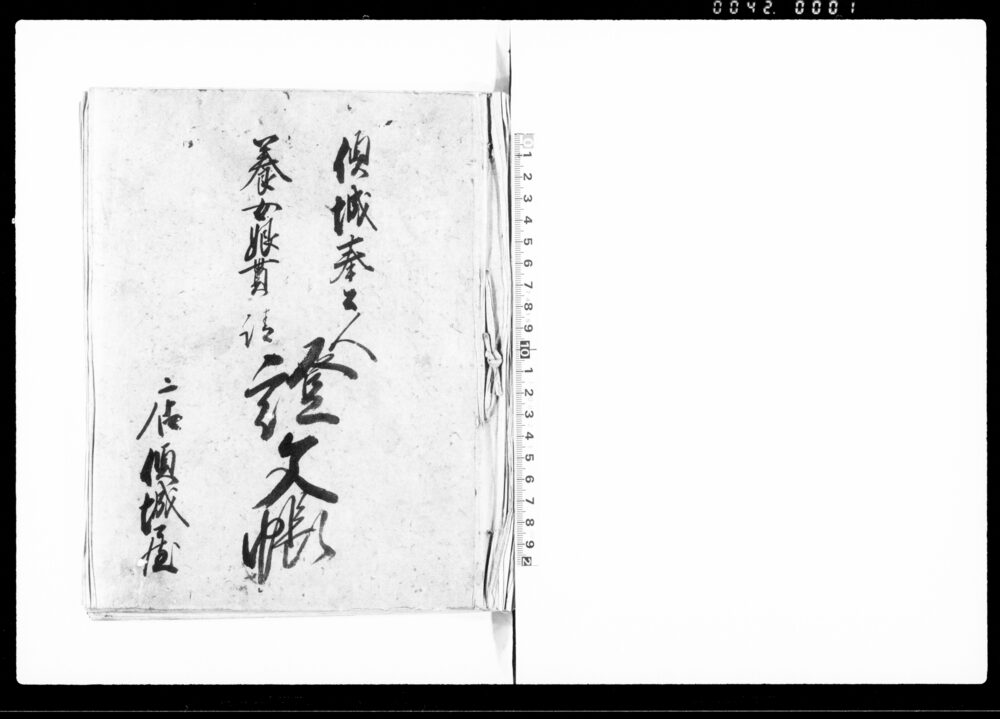 0042.0001
傾城奉公人
養女娘貰請
證文帳
二店傾城屋
1 2 3 4 5 6 7 8 9 10 1 2 3 4 5 6 7 8 9 2